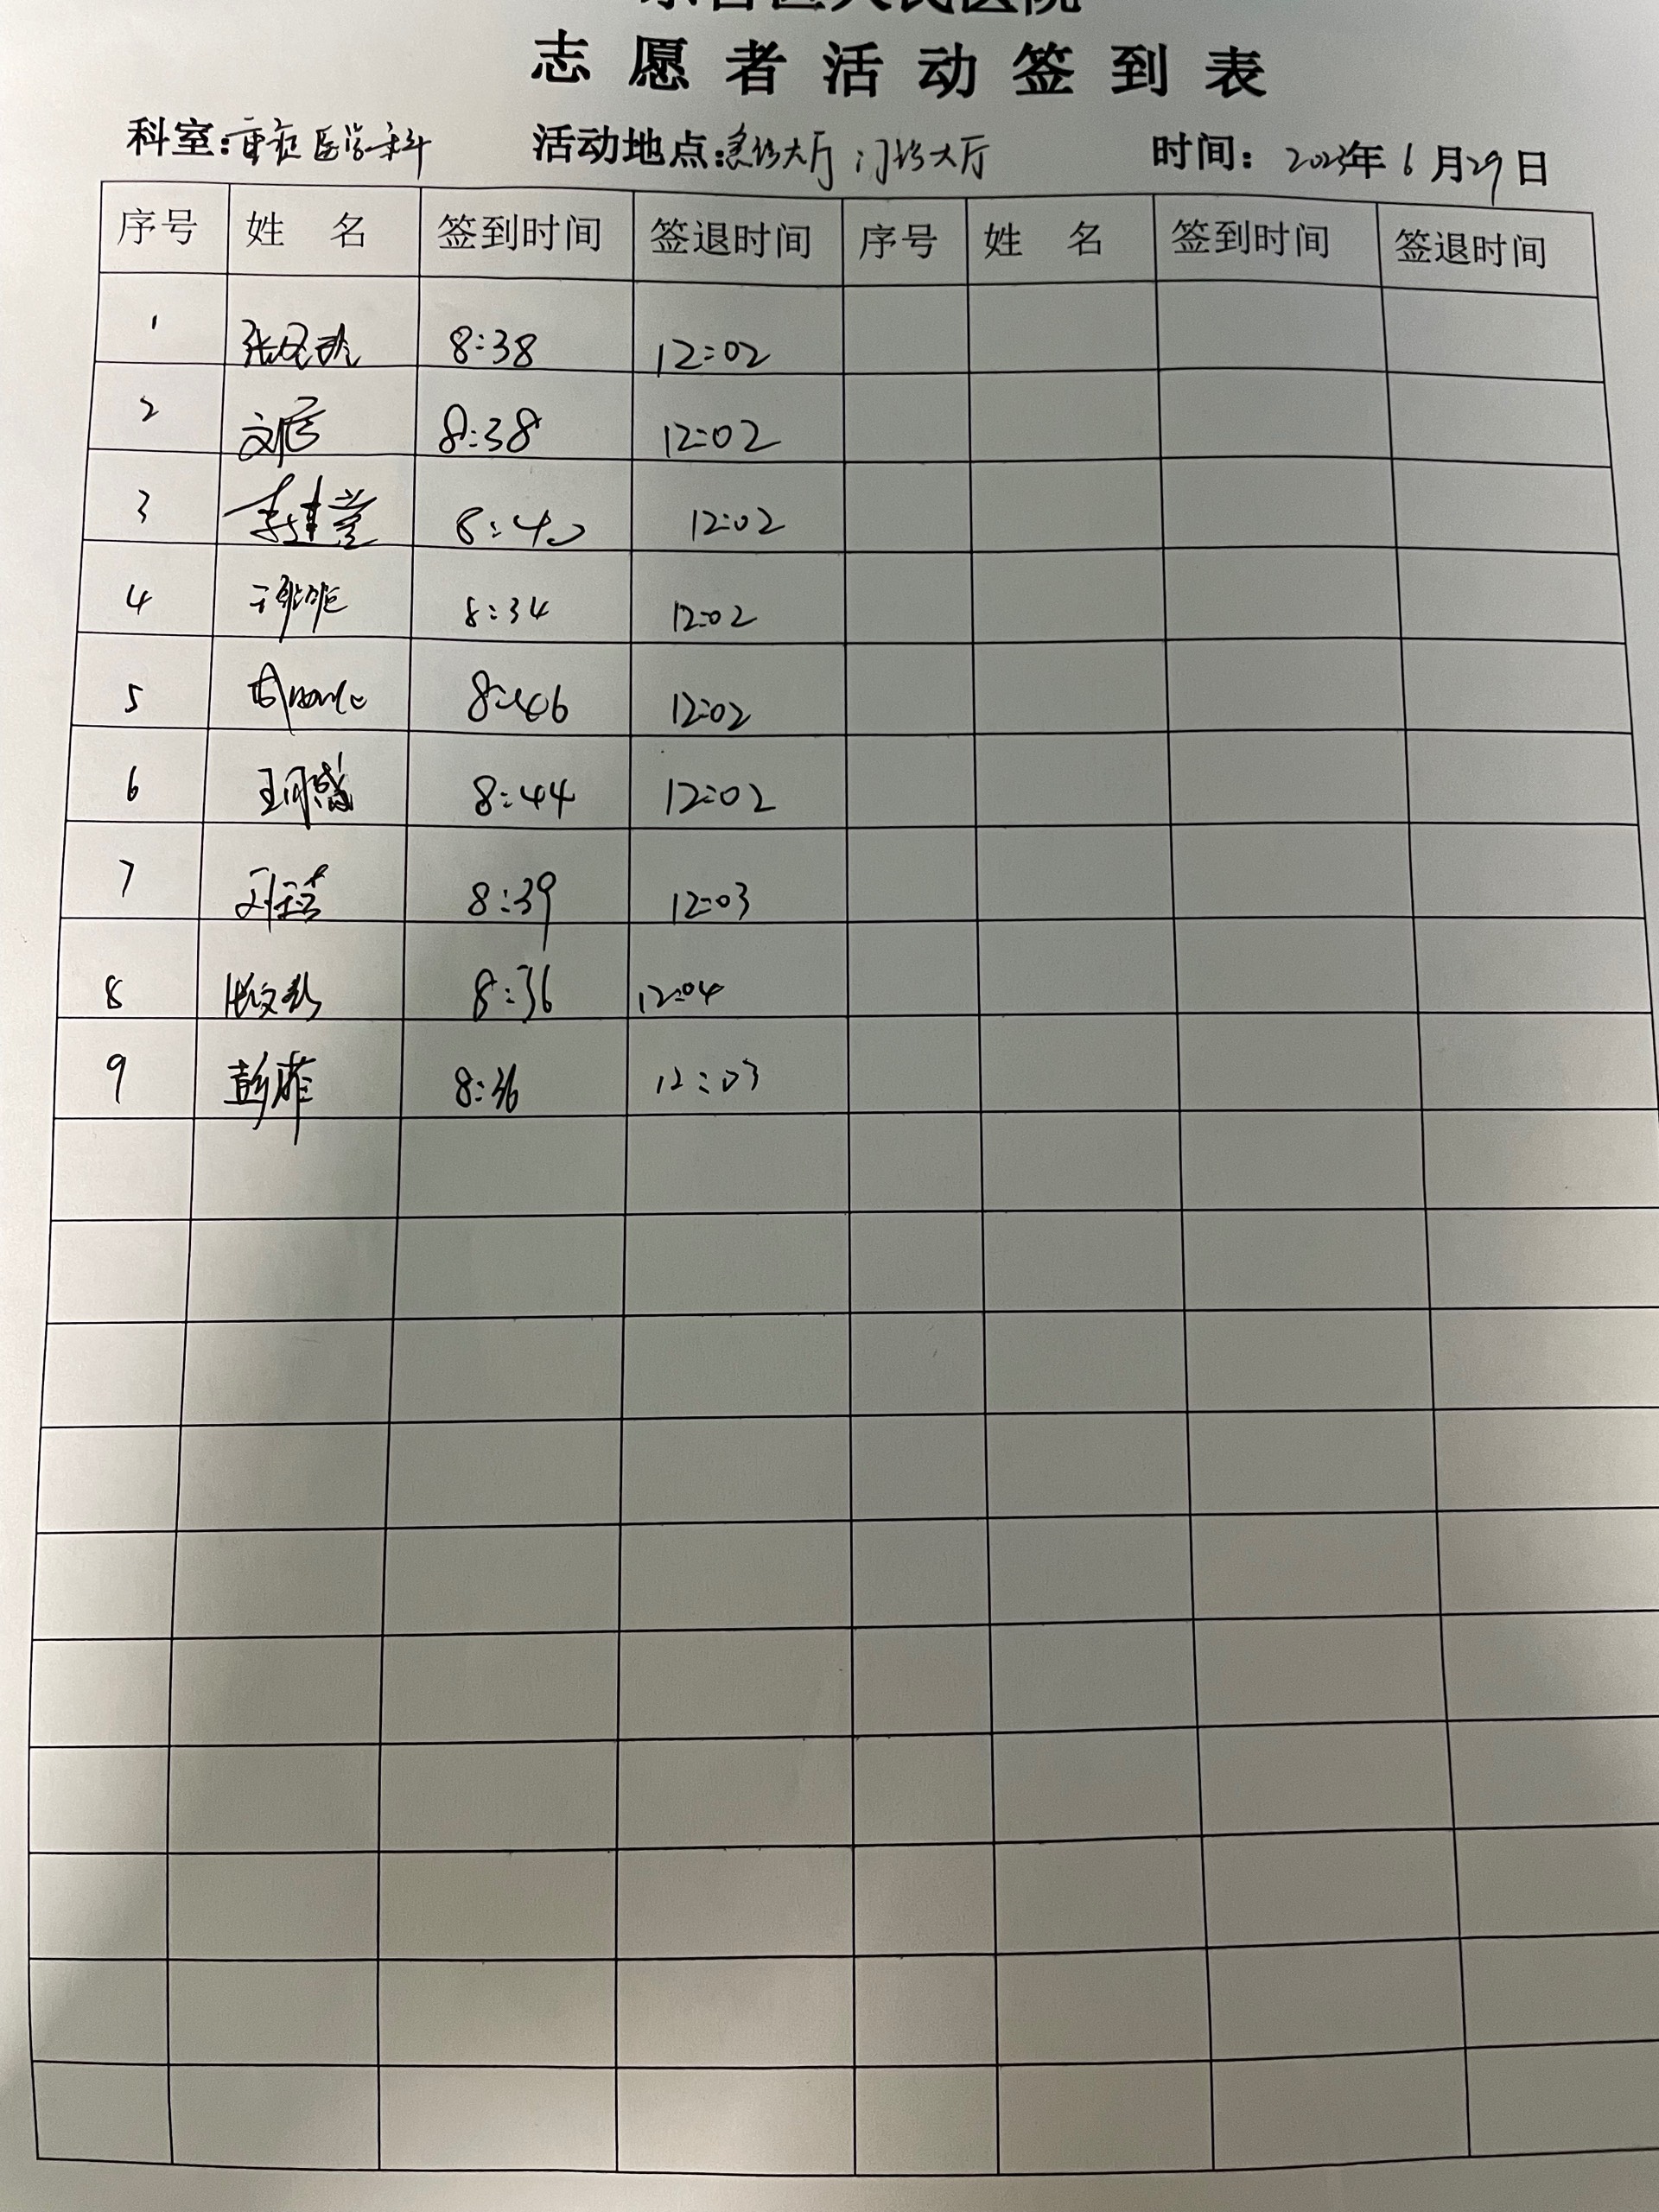 人民医院
志愿者活动签到表
科室：重症医学科 活动地点：急诊大厅 门诊大厅 时间：2023年6月29日
序号 姓名 签到时间 签退时间 序号 姓名 签到时间 签退时间
1 8:38 12:02
2 8:38 12:02
3 8:40 12:02
4 8:34 12:02
5 8:46 12:02
6 8:44 12:02
7 8:39 12:03
8 8:36 12:04
9 彭菲 8:36 12:03